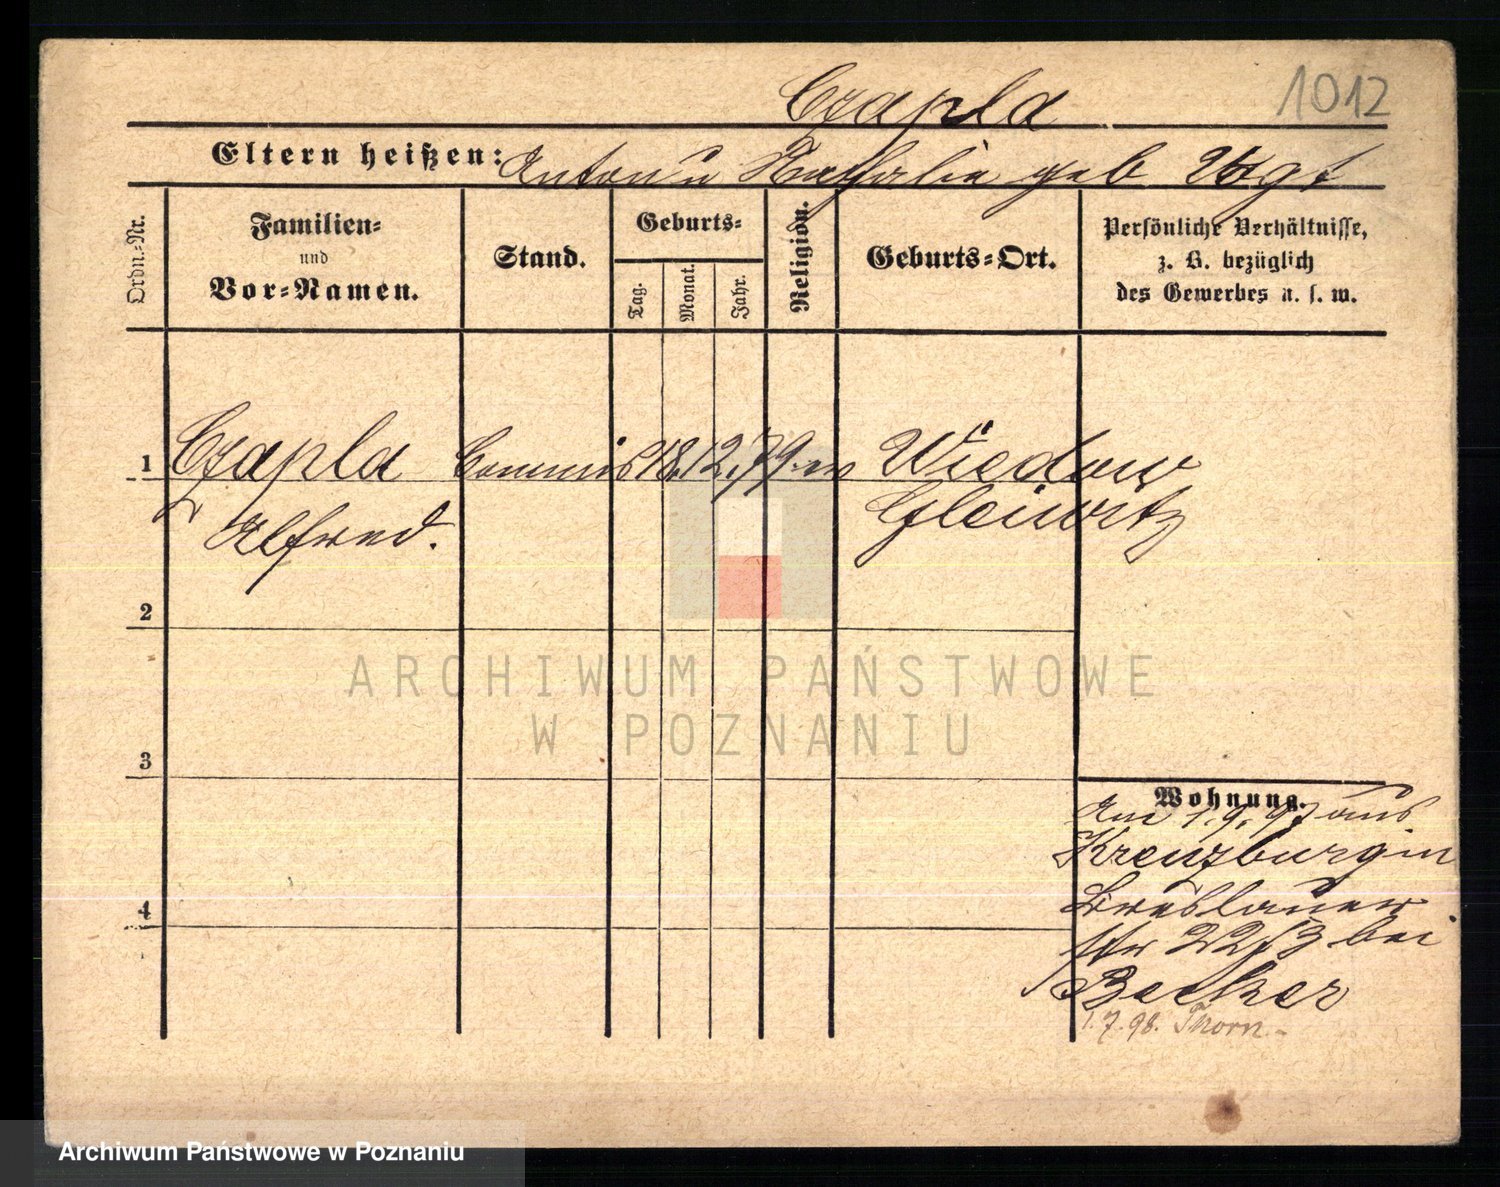 Czapla 1012
Eltern heißen: Anton u Nathalie geb Vogt
Ordn.=Nr.
Familien=
und
Vor=Namen.
Stand.
Geburts=
Tag.
Monat.
Jahr.
Religion.
Geburts=Ort.
Persönliche Verhältnisse,
z. B. bezüglich
des Gewerbes u. s. w.
1 Czapla Commis 18. 12. 79. Wiedow
Alfred. Gleiwitz
2
3
4
Wohnung.
Am 1.9.97 aus
Kreuzburg in
Breslauer
Str 22/3 bei
Becker
1.7.98. Thorn
ARCHIWUM PAŃSTWOWE
W POZNANIU
Archiwum Państwowe w Poznaniu